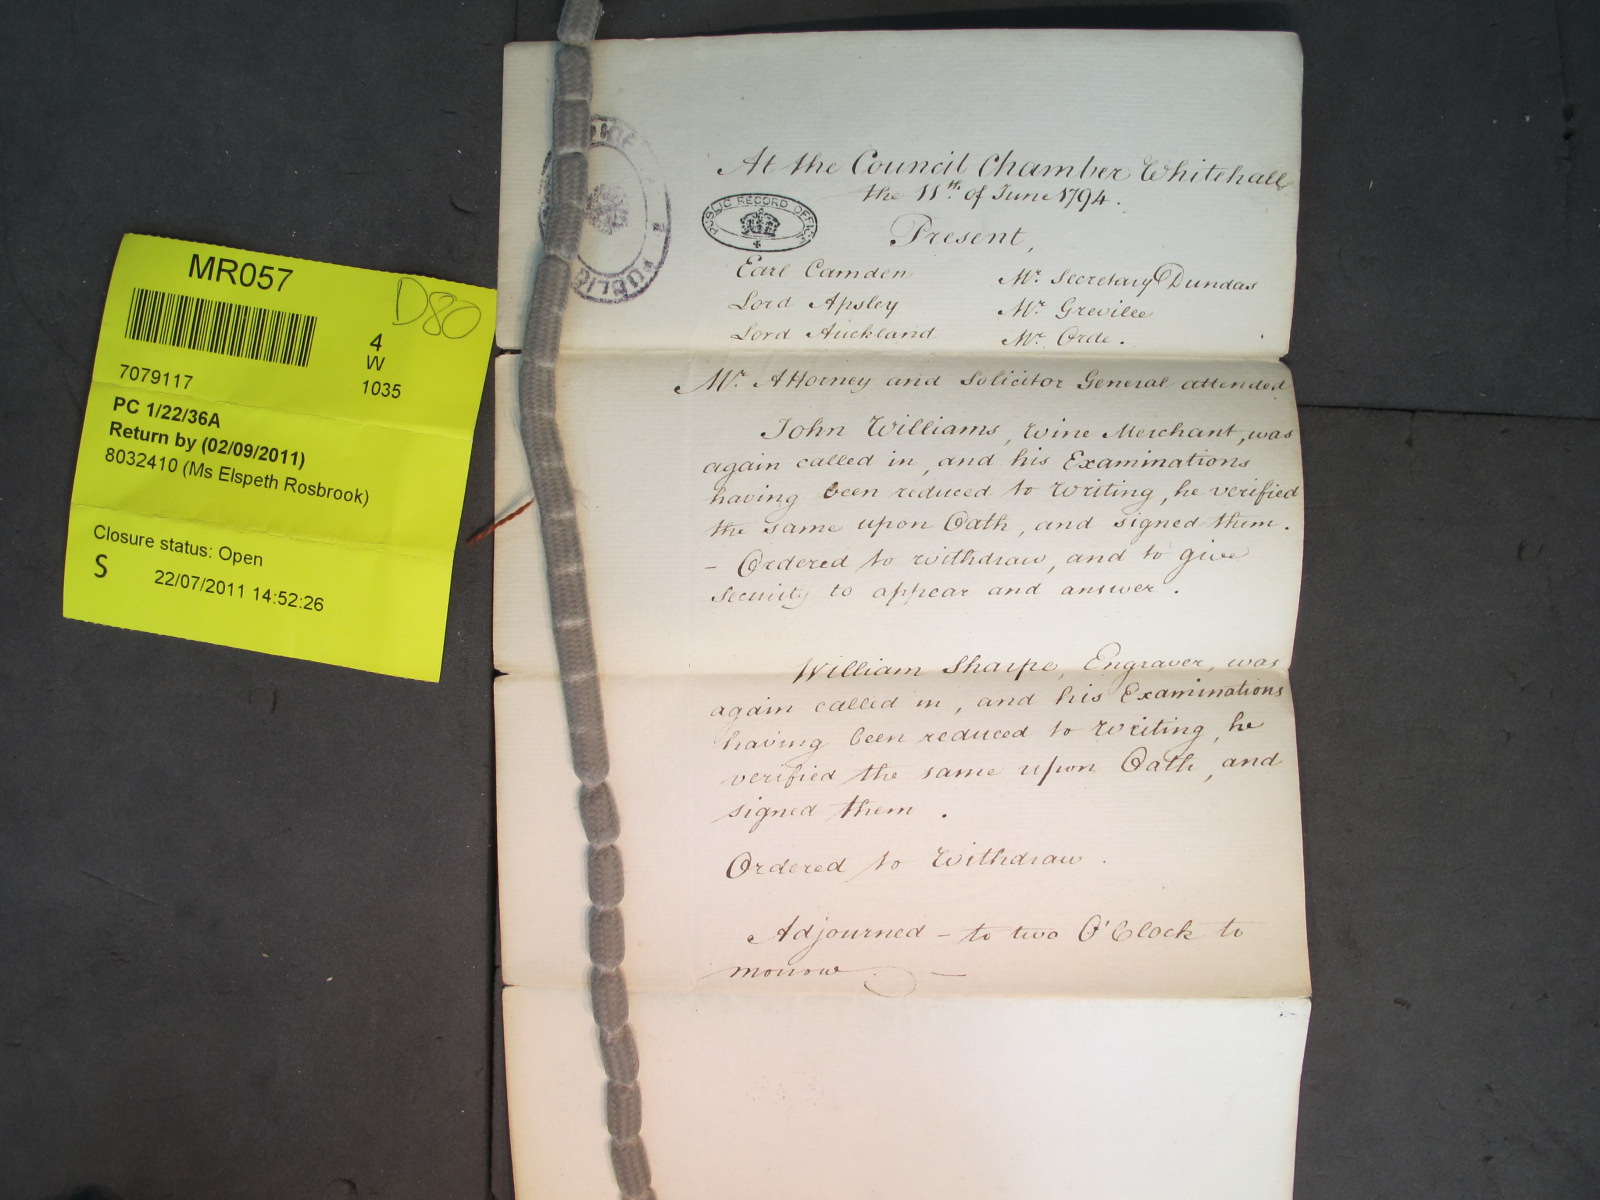 MR057
D80
4
W
1035
7079117
PC 1/22/36A
Return by (02/09/2011)
8032410 (Ms Elspeth Rosbrook)
Closure status: Open
S 22/07/2011 14:52:26
PUBLIC
PUBLIC RECORD OFFICE
At the Council Chamber Whitehall
the 11th. of June 1794.
Present,
Earl Camden Mr. Secretary Dundas
Lord Apsley Mr. Greville
Lord Auckland Mr. Orde.
Mr. Attorney and Solicitor General attended
John Williams, Wine Merchant, was
again called in, and his Examinations
having been reduced to Writing, he verified
the same upon Oath, and signed them.
- Ordered to withdraw, and to give
security to appear and answer.
William Sharpe, Engraver, was
again called in, and his Examinations
having been reduced to Writing, he
verified the same upon Oath, and
signed them.
Ordered to Withdraw.
Adjourned - to two O'Clock to
morrow. -